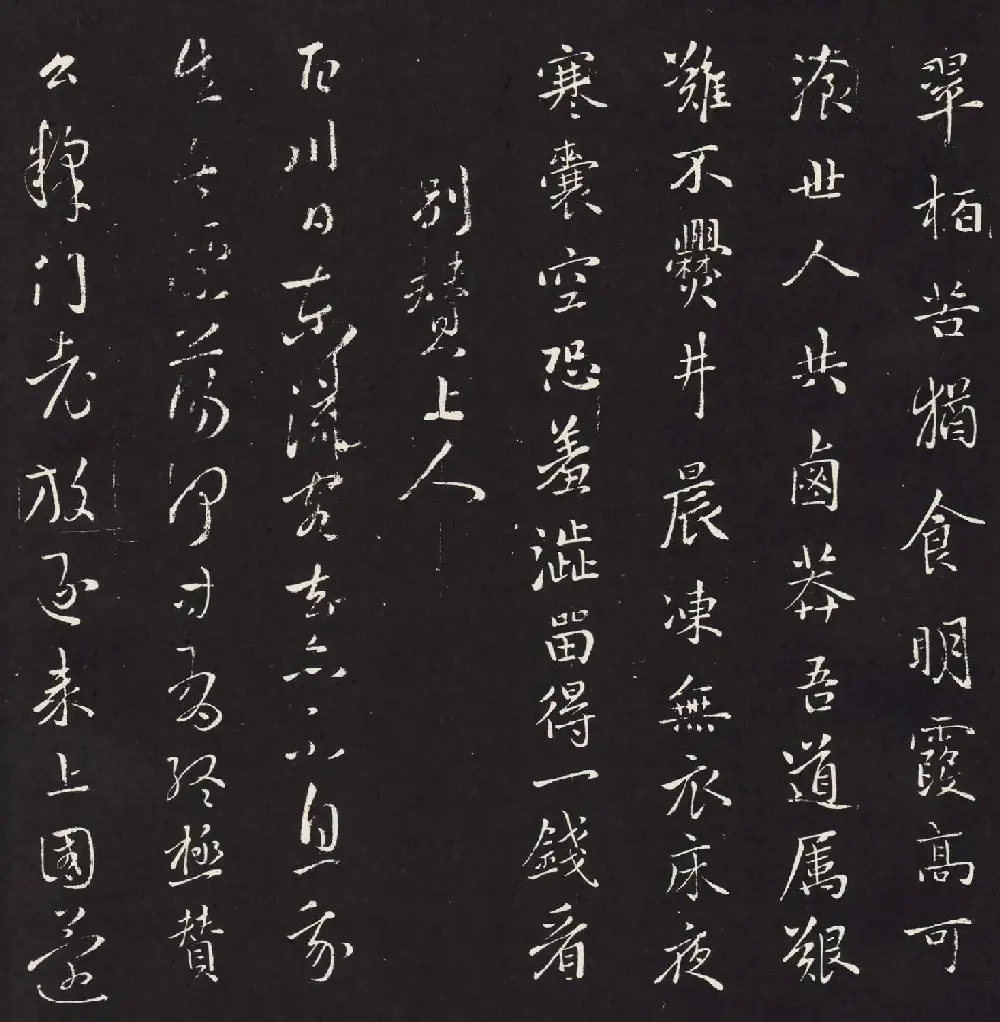 翠柏苦猶食明霞高可
飡世人共鹵莽吾道属艱
難不爨井晨凍無衣床夜
寒囊空恐羞澁留得一錢看
別贊上人
百川日東流客去亦不息我
生苦漂蕩何時有終極贊
公釋門老放逐来上國還